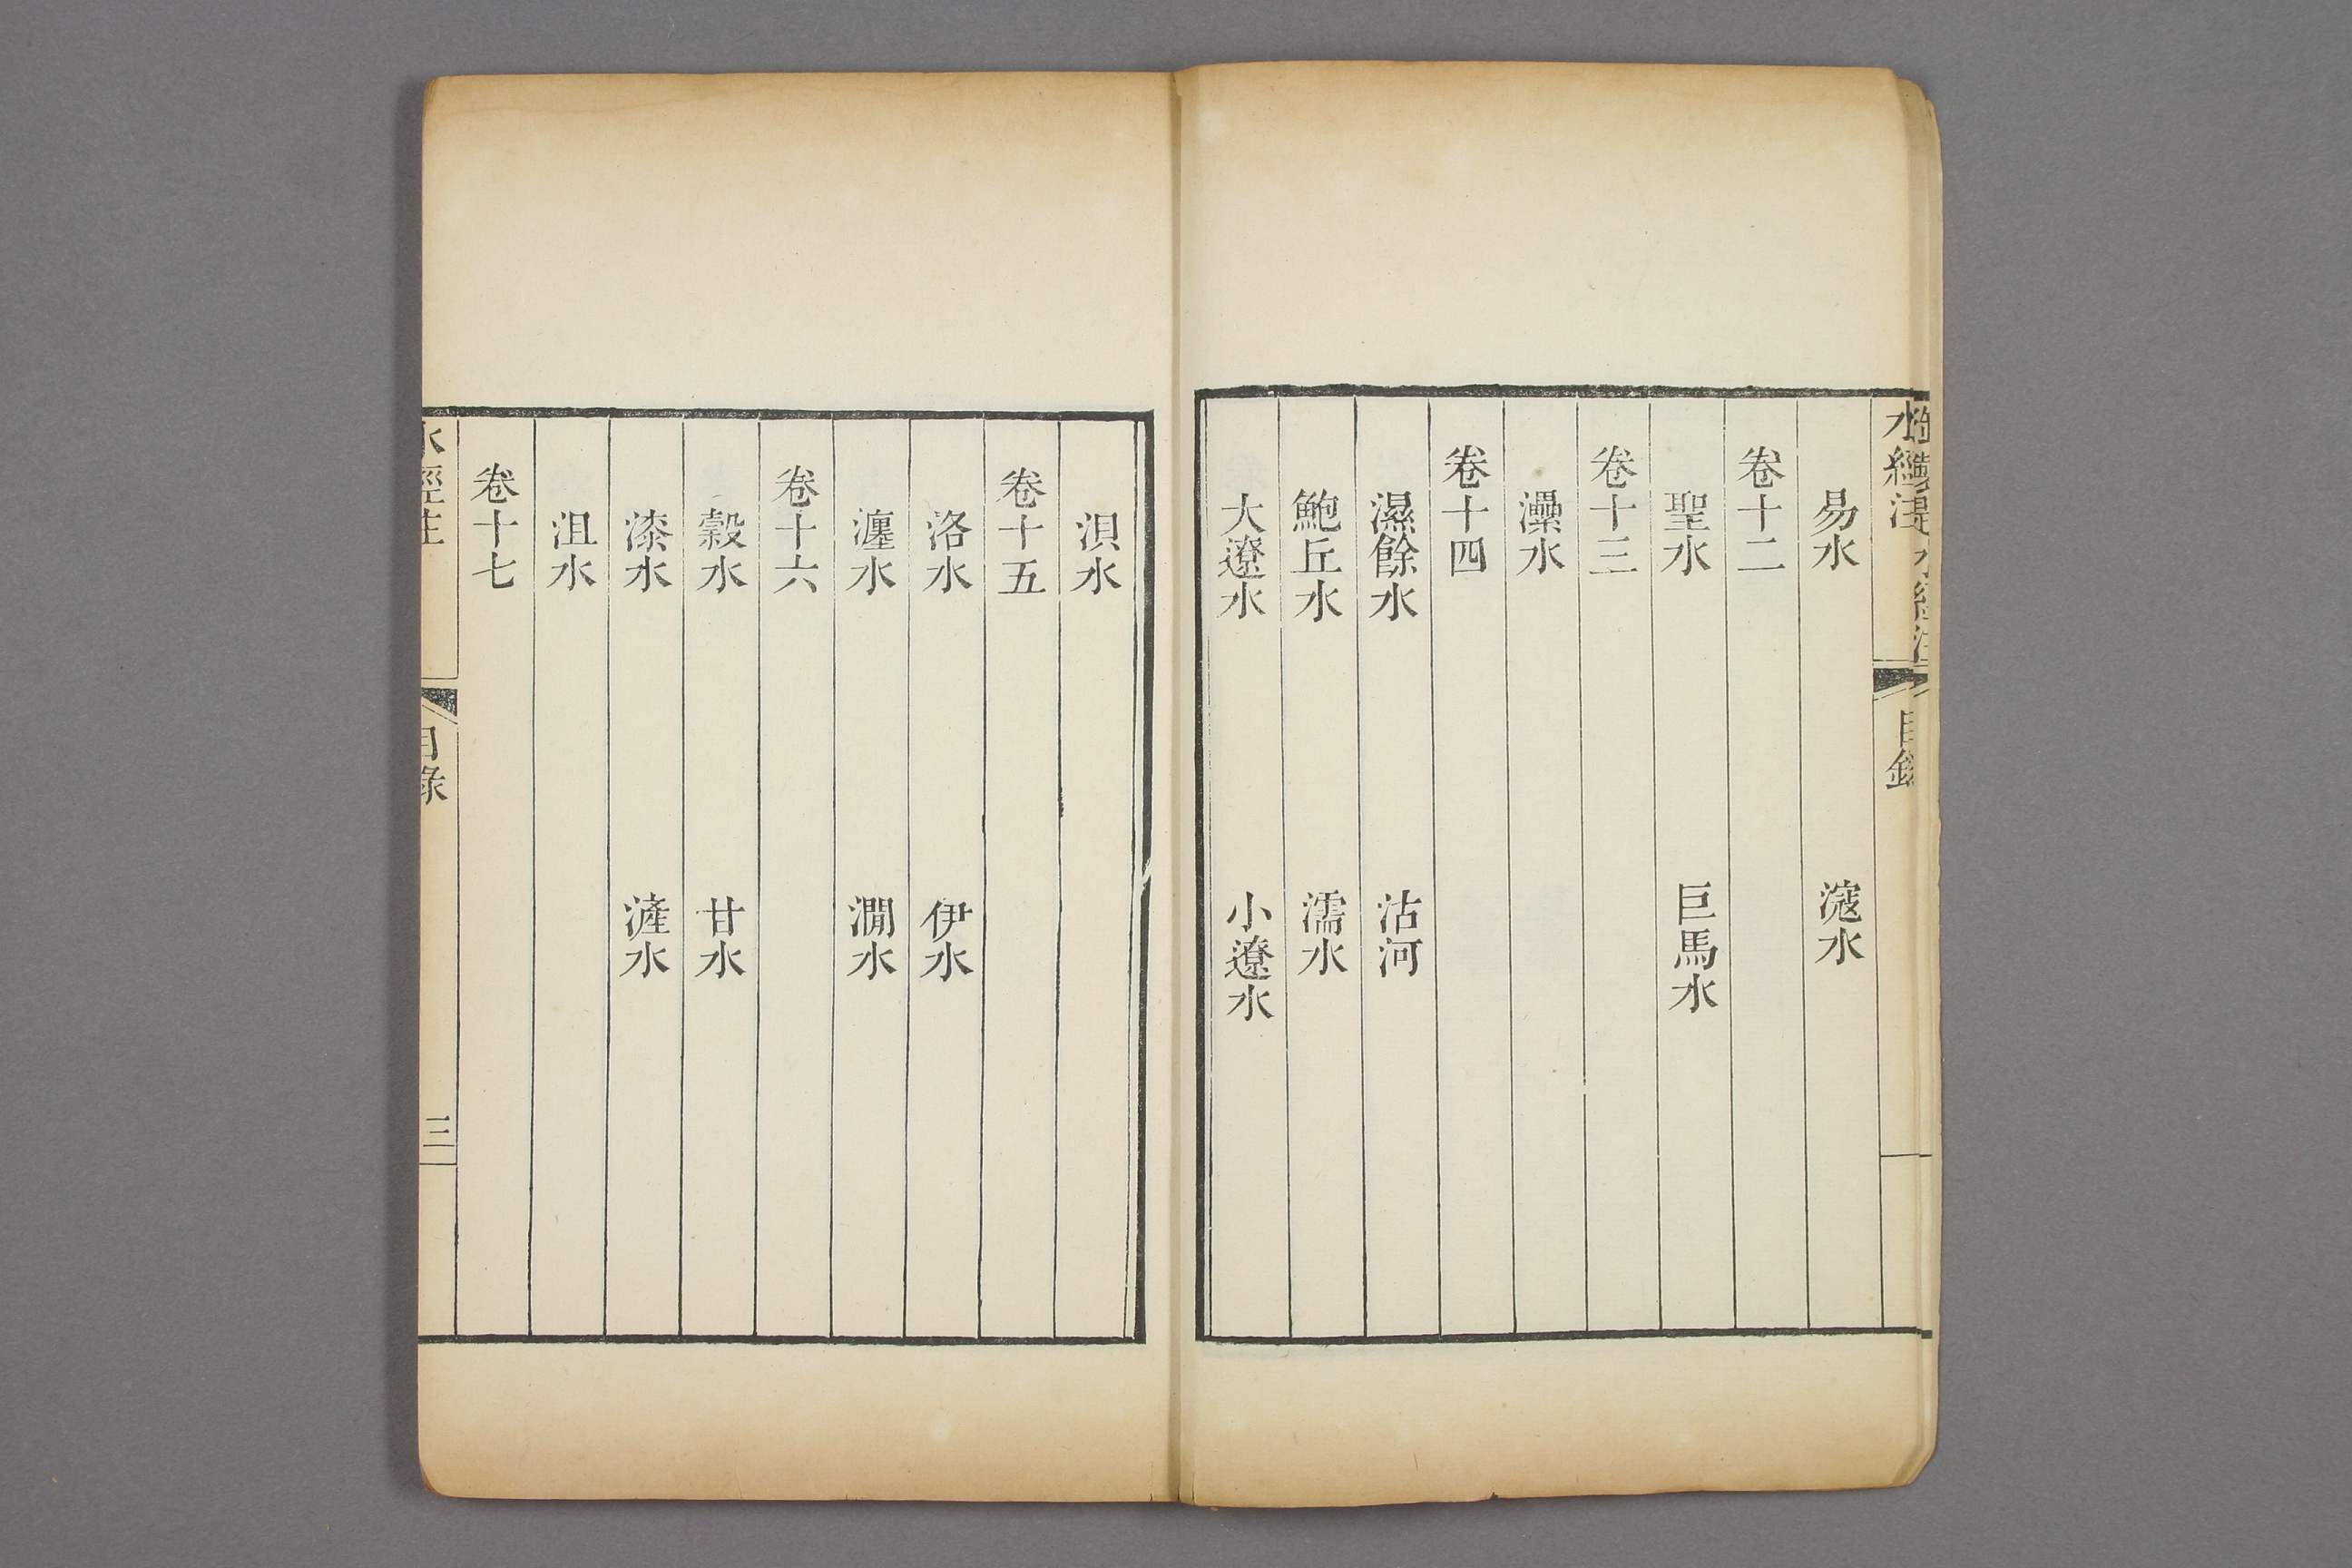 水經注
目錄
易水　滱水
卷十二
聖水　巨馬水
卷十三
灅水
卷十四
濕餘水　沽河
鮑丘水　濡水
大遼水　小遼水
浿水
卷十五
洛水　伊水
瀍水　澗水
卷十六
穀水　甘水
漆水　滻水
沮水
卷十七
水經注
目錄
三